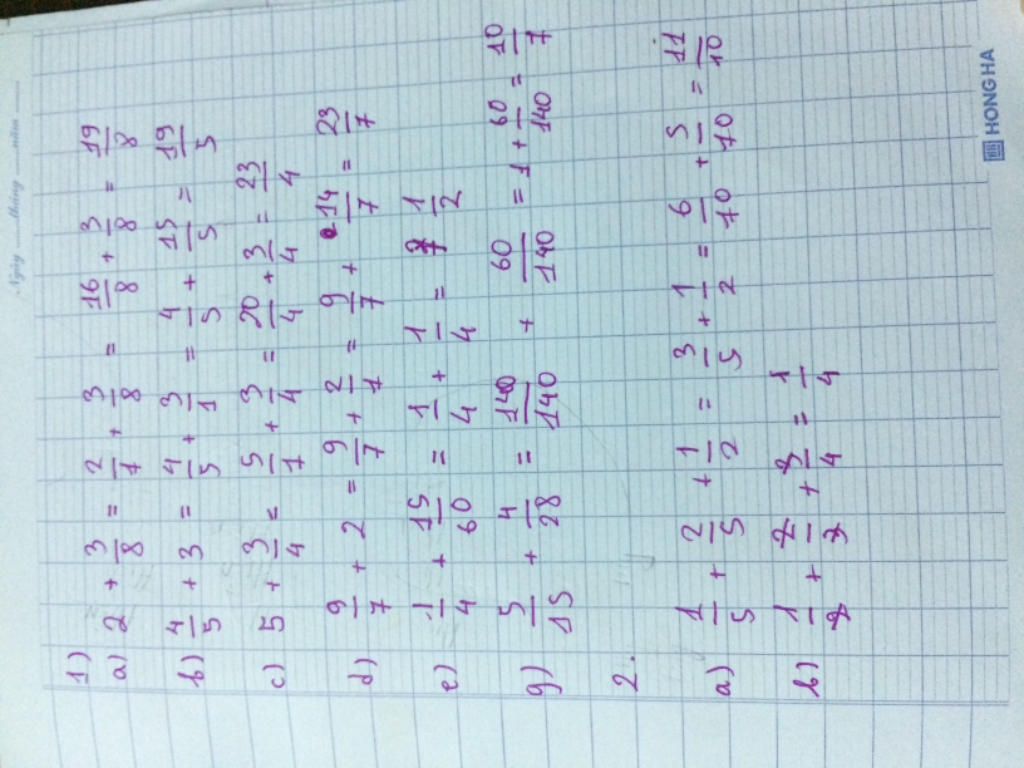 Ngày ..... tháng ..... năm .....
1)
a) 2 + 3/8 = 2/1 + 3/8 = 16/8 + 3/8 = 19/8
b) 4/5 + 3 = 4/5 + 3/1 = 4/5 + 15/5 = 19/5
c) 5 + 3/4 = 5/1 + 3/4 = 20/4 + 3/4 = 23/4
d) 9/7 + 2 = 9/7 + 2/1 = 9/7 + 14/7 = 23/7
e) 1/4 + 15/60 = 1/4 + 1/4 = 1/2
g) 5/15 + 4/28 = 140/140 + 60/140 = 1 + 60/140 = 10/7
2.
a) 1/5 + 2/5 + 1/2 = 3/5 + 1/2 = 6/10 + 5/10 = 11/10
b) 1/2 + 2/3 + 3/4 = 1/4
HONG HA